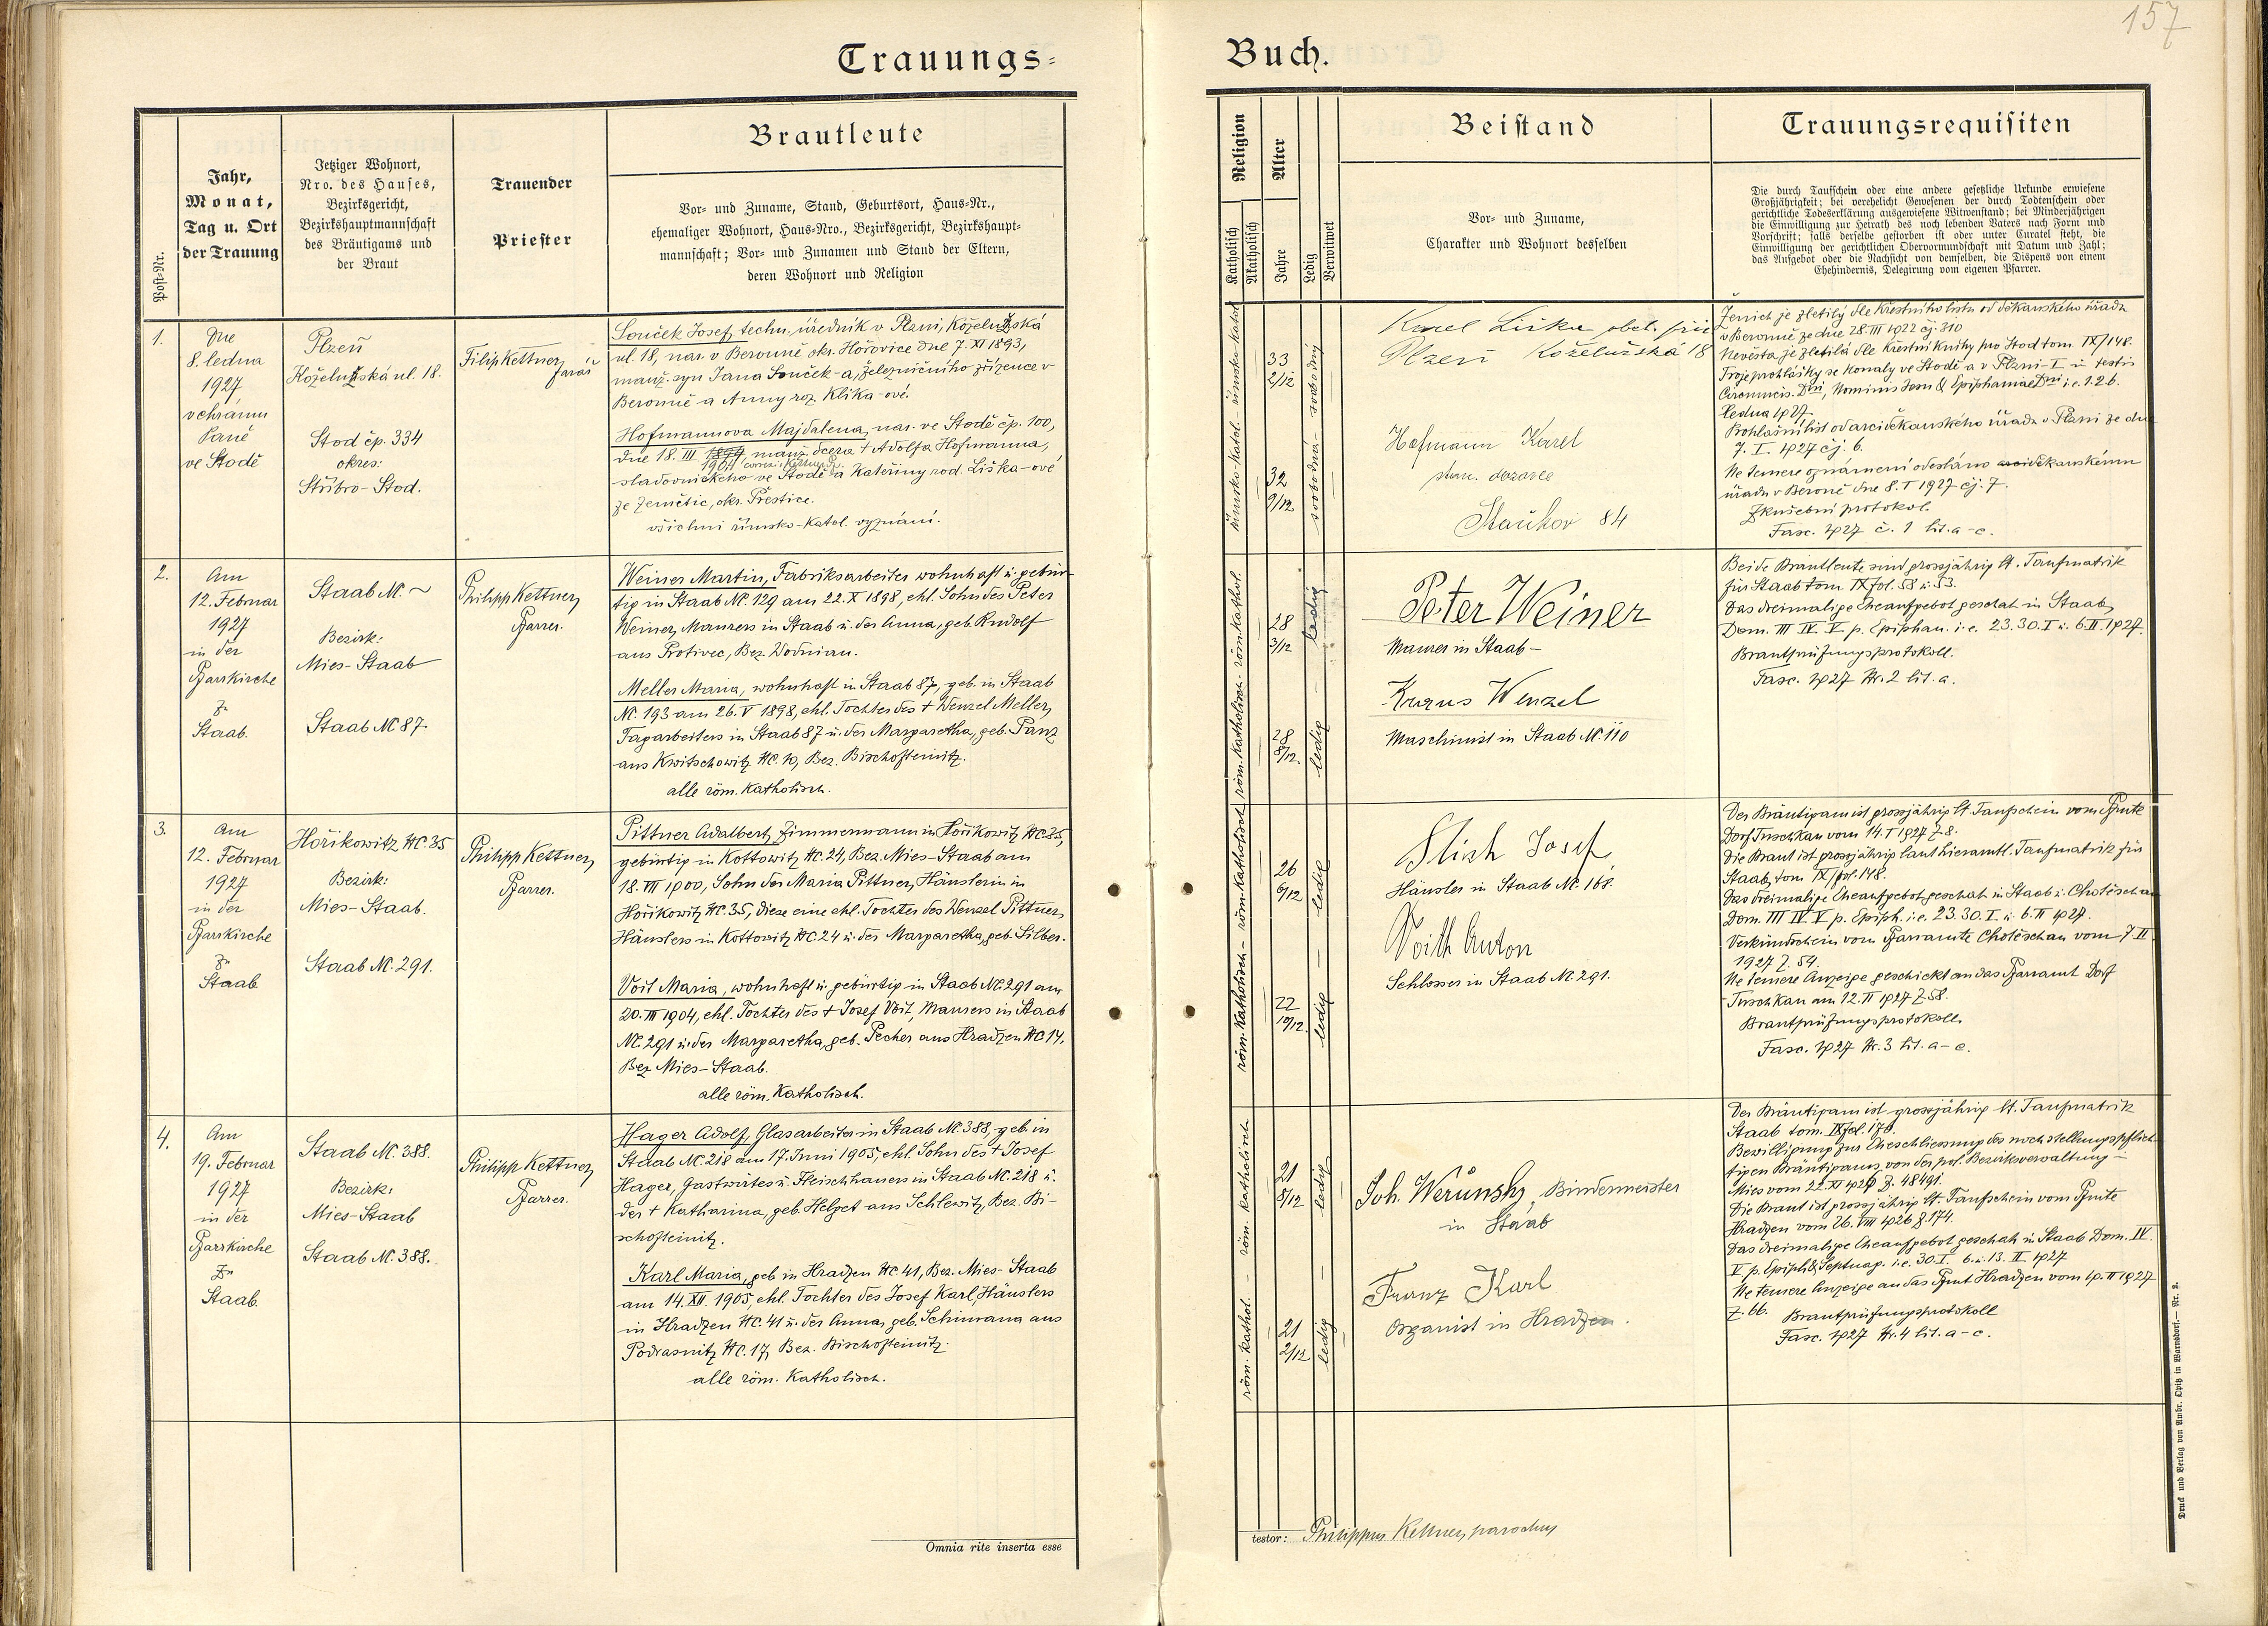 157
Trauungs=
Buch.
Post-Nr.
Jahr,
Monat,
Tag u. Ort
der Trauung
Jetziger Wohnort,
Nro. des Hauses,
Bezirksgericht,
Bezirkshauptmannschaft
des Bräutigams und
der Braut
Trauender
Priester
Brautleute
Vor- und Zuname, Stand, Geburtsort, Haus-Nr.,
ehemaliger Wohnort, Haus-Nro., Bezirksgericht, Bezirkshaupt-
mannschaft; Vor- und Zunamen und Stand der Eltern,
deren Wohnort und Religion
Religion
Katholisch
Akatholisch
Alter
Jahre
Ledig
Verwitwet
Beistand
Vor- und Zuname,
Charakter und Wohnort desselben
Trauungsrequisiten
Die durch Taufschein oder eine andere gesetzliche Urkunde erwiesene
Großjährigkeit; bei verehelicht Gewesenen der durch Todtenschein oder
gerichtliche Todeserklärung ausgewiesene Witwenstand; bei Minderjährigen
die Einwilligung zur Heirath des noch lebenden Vaters nach Form und
Vorschrift; falls derselbe gestorben ist oder unter Curatel steht, die
Einwilligung der gerichtlichen Obervormundschaft mit Datum und Zahl;
das Aufgebot oder die Nachsicht von demselben, die Dispens von einem
Ehehindernis, Delegirung vom eigenen Pfarrer.
1.
Dne
8. ledna
1927
v chrámu
Páně
ve Stodě
Plzeň
Koželužská ul. 18.
Stod čp. 334
okres:
Stříbro-Stod.
Filip Kettner,
farář
Souček Josef, techn. úředník v Plzni, Koželužská
ul. 18, nar. v Berouně okr. Hořovice dne 7. XI 1893,
manž. syn Jana Souček-a, železničního zřízence v
Berouně a Anny roz. Klika-ové.
Hofmannova Majdalena, nar. ve Stodě čp. 100,
dne 18. III 1894, manž. dcera + Adolfa Hofmanna,
1904
sladovnického ve Stodě a Kateřiny rod. Liška-ové
ze Zemětic, okr. Přestice.
všichni římsko-katol. vyznání.
římsko-katol. - římsko-katol.
33
2/12
32
9/12
svobodna - svobodný
Karel Liška
Plzeň Koželužská 18
Hofmann Karel
Staňkov 84
Ženich je zletilý dle křestního listu od děkanského úřadu
v Berouně ze dne 28. III 1922 čj. 310
Nevěsta je zletilá dle křestní knihy pro Stod tom. IX/148.
Troje prohlášky se konaly ve Stodě a v Plzni-I in festis
Circumcis. Dni, Nominis Jesu & Epiphaniae Dni i. e. 1. 2. 6.
ledna 1927.
Prohlašní list od arciděkanského úřadu v Plzni ze dne
7. I. 1927 čj. 6.
Ne temere oznámení odesláno arciděkanskému
úřadu v Berouně dne 8. I 1927 čj. 7.
Zkušební protokol.
Fasc. 1927 č. 1 lit. a-c.
2.
Am
12. Februar
1927
in der
Pfarrkirche
zu
Staab.
Staab Nc. ~
Bezirk:
Mies-Staab
Staab Nc 87
Philipp Kettner,
Pfarrer.
Weiner Martin, Fabriksarbeiter wohnhaft u. gebür-
tig in Staab Nc. 129 am 22. X 1898, ehl. Sohn des Peter
Weiner, Maurers in Staab u. der Anna, geb. Rudolf
aus Protivec, Bez. Wodnian.
Meller Maria, wohnhaft in Staab 87, geb. in Staab
Nc. 193 am 26. V 1898, ehl. Tochter des + Wenzel Meller,
Tagarbeiters in Staab 87 u. der Margaretha, geb. Panz
aus Kwitschowitz Nc. 10, Bez. Bischofteinitz.
alle röm. katholisch.
röm. katholisch - röm. kathol.
28
3/12
28
8/12
ledig - ledig
Peter Weiner
Maurer in Staab -
Kraus Wenzel
Maschinist in Staab Nc. 110
Beide Brautleute sind grossjährig lt. Taufmatrik
für Staab tom IX fol. 58 u. 53.
Das dreimalige Eheaufgebot geschah in Staab,
Dom. III IV. V p. Epiphan. i. e. 23. 30. I u. 6. II. 1927.
Brautprüfungsprotokoll.
Fasc. 1927 Nr. 2 lit. a.
3.
Am
12. Februar
1927
in der
Pfarrkirche
zu
Staab
Hořikowitz Nc. 35
Bezirk:
Mies-Staab.
Staab Nc. 291.
Philipp Kettner,
Pfarrer.
Pittner Adalbert, Zimmermann in Hořikowitz Nc. 35,
gebürtig in Kottowitz Nc. 24, Bez. Mies-Staab am
18. VII 1900, Sohn der Maria Pittner, Häuslerin in
Hořikowitz Nc. 35, diese eine ehl. Tochter des Wenzel Pittner,
Häuslers in Kottowitz Nc 24 u. der Margaretha, geb. Silber.
Voit Maria, wohnhaft u. gebürtig in Staab Nc. 291 am
20. III 1904, ehl. Tochter des + Josef Voit, Maurers in Staab
Nc. 291 u. der Margaretha, geb. Pecher aus Hradzen Nc 14,
Bez. Mies-Staab.
alle röm. katholisch.
röm. katholisch - röm. katholisch
26
6/12
22
10/12.
ledig - ledig
Josef
Häusler in Staab Nc. 168.
Voith Anton
Schlosser in Staab Nc. 291.
Der Bräutigam ist grossjährig lt. Taufschein vom Pfarramte
Dorf Tuschkau vom 14. I 1927 Z. 8.
Die Braut ist grossjährig laut hieramtl. Taufmatrik für
Staab, tom IX/fol. 148.
Das dreimalige Eheaufgebot geschah in Staab u. Chotěschau
Dom. III IV V p. Epiph. i. e. 23. 30. I. u. 6. II 1927.
Verkündschein vom Pfarramte Chotěschau vom 7. II
1927 Z. 54.
Ne temere Anzeige geschickt an das Pfarramt Dorf
Tuschkau am 12. II 1927 Z 58.
Brautprüfungsprotokoll.
Fasc. 1927 Nr. 3 lit. a-e.
4.
Am
19. Februar
1927
in der
Pfarrkirche
zu
Staab.
Staab Nc. 388.
Bezirk:
Mies-Staab
Staab Nc. 388.
Philipp Kettner,
Pfarrer.
Hager Adolf, Glasarbeiter in Staab Nc. 388, geb. in
Staab Nc. 218 am 17. Juni 1905, ehl. Sohn des + Josef
Hager, Gastwirtes u. Fleischhauers in Staab Nc. 218 u.
der + Katharina, geb. Helget aus Schlewitz, Bez. Bi-
schofteinitz.
Karl Maria, geb in Hradzen Nc. 41, Bez. Mies-Staab
am 14. XII. 1905, ehl. Tochter des Josef Karl, Häuslers
in Hradzen Nc. 41 u. der Anna, geb. Schimana aus
Podrasnitz Nc. 17, Bez. Bischofteinitz.
alle röm. katholisch.
röm. kathol. - röm. katholisch
21
8/12
21
2/12
ledig - ledig
Joh. Werunsky, Bindermeister
in Staab
Franz Karl
Organist in Hradzen.
Der Bräutigam ist grossjährig lt. Taufmatrik
Staab tom. IX fol. 178.
Bewilligung zur Eheschliessung des noch stellungspflich-
tigen Bräutigams von der pol. Bezirksverwaltung
Mies vom 22. XI 1926 Z. 48491.
Die Braut ist grossjährig lt. Taufschein vom Pfarramte
Hradzen vom 26. VIII 1926 Z. 174.
Das dreimalige Eheaufgebot geschah in Staab Dom. IV.
V p. Epiph & Septuag. i. e. 30. I. 6. u. 13. II 1927
Ne temere Anzeige an das Pfarramt Hradzen vom 19. II 1927
Z. 66. Brautprüfungsprotokoll
Fasc. 1927 Nr. 4 lit. a-c.
Omnia rite inserta esse
testor: Philippus Kettner, parochus
Druck und Verlag von Ambr. Opitz in Warnsdorf. — Nr. 2.